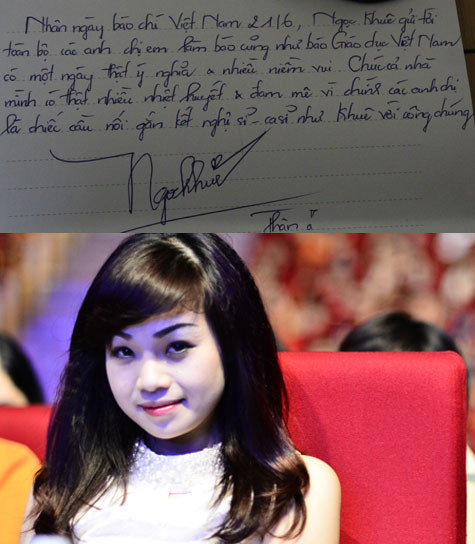 Nhân ngày báo chí Việt Nam 21/6, Ngọc Khuê gửi tới
toàn bộ các anh chị em làm báo cũng như báo Giáo dục Việt Nam
có một ngày thật ý nghĩa & nhiều niềm vui. Chúc cả nhà
mình có thật nhiều nhiệt huyết & đam mê vì chính các anh chị
là chiếc cầu nối gắn kết nghệ sĩ - ca sĩ như Khuê với công chúng
Ngọc Khuê
Thân ái